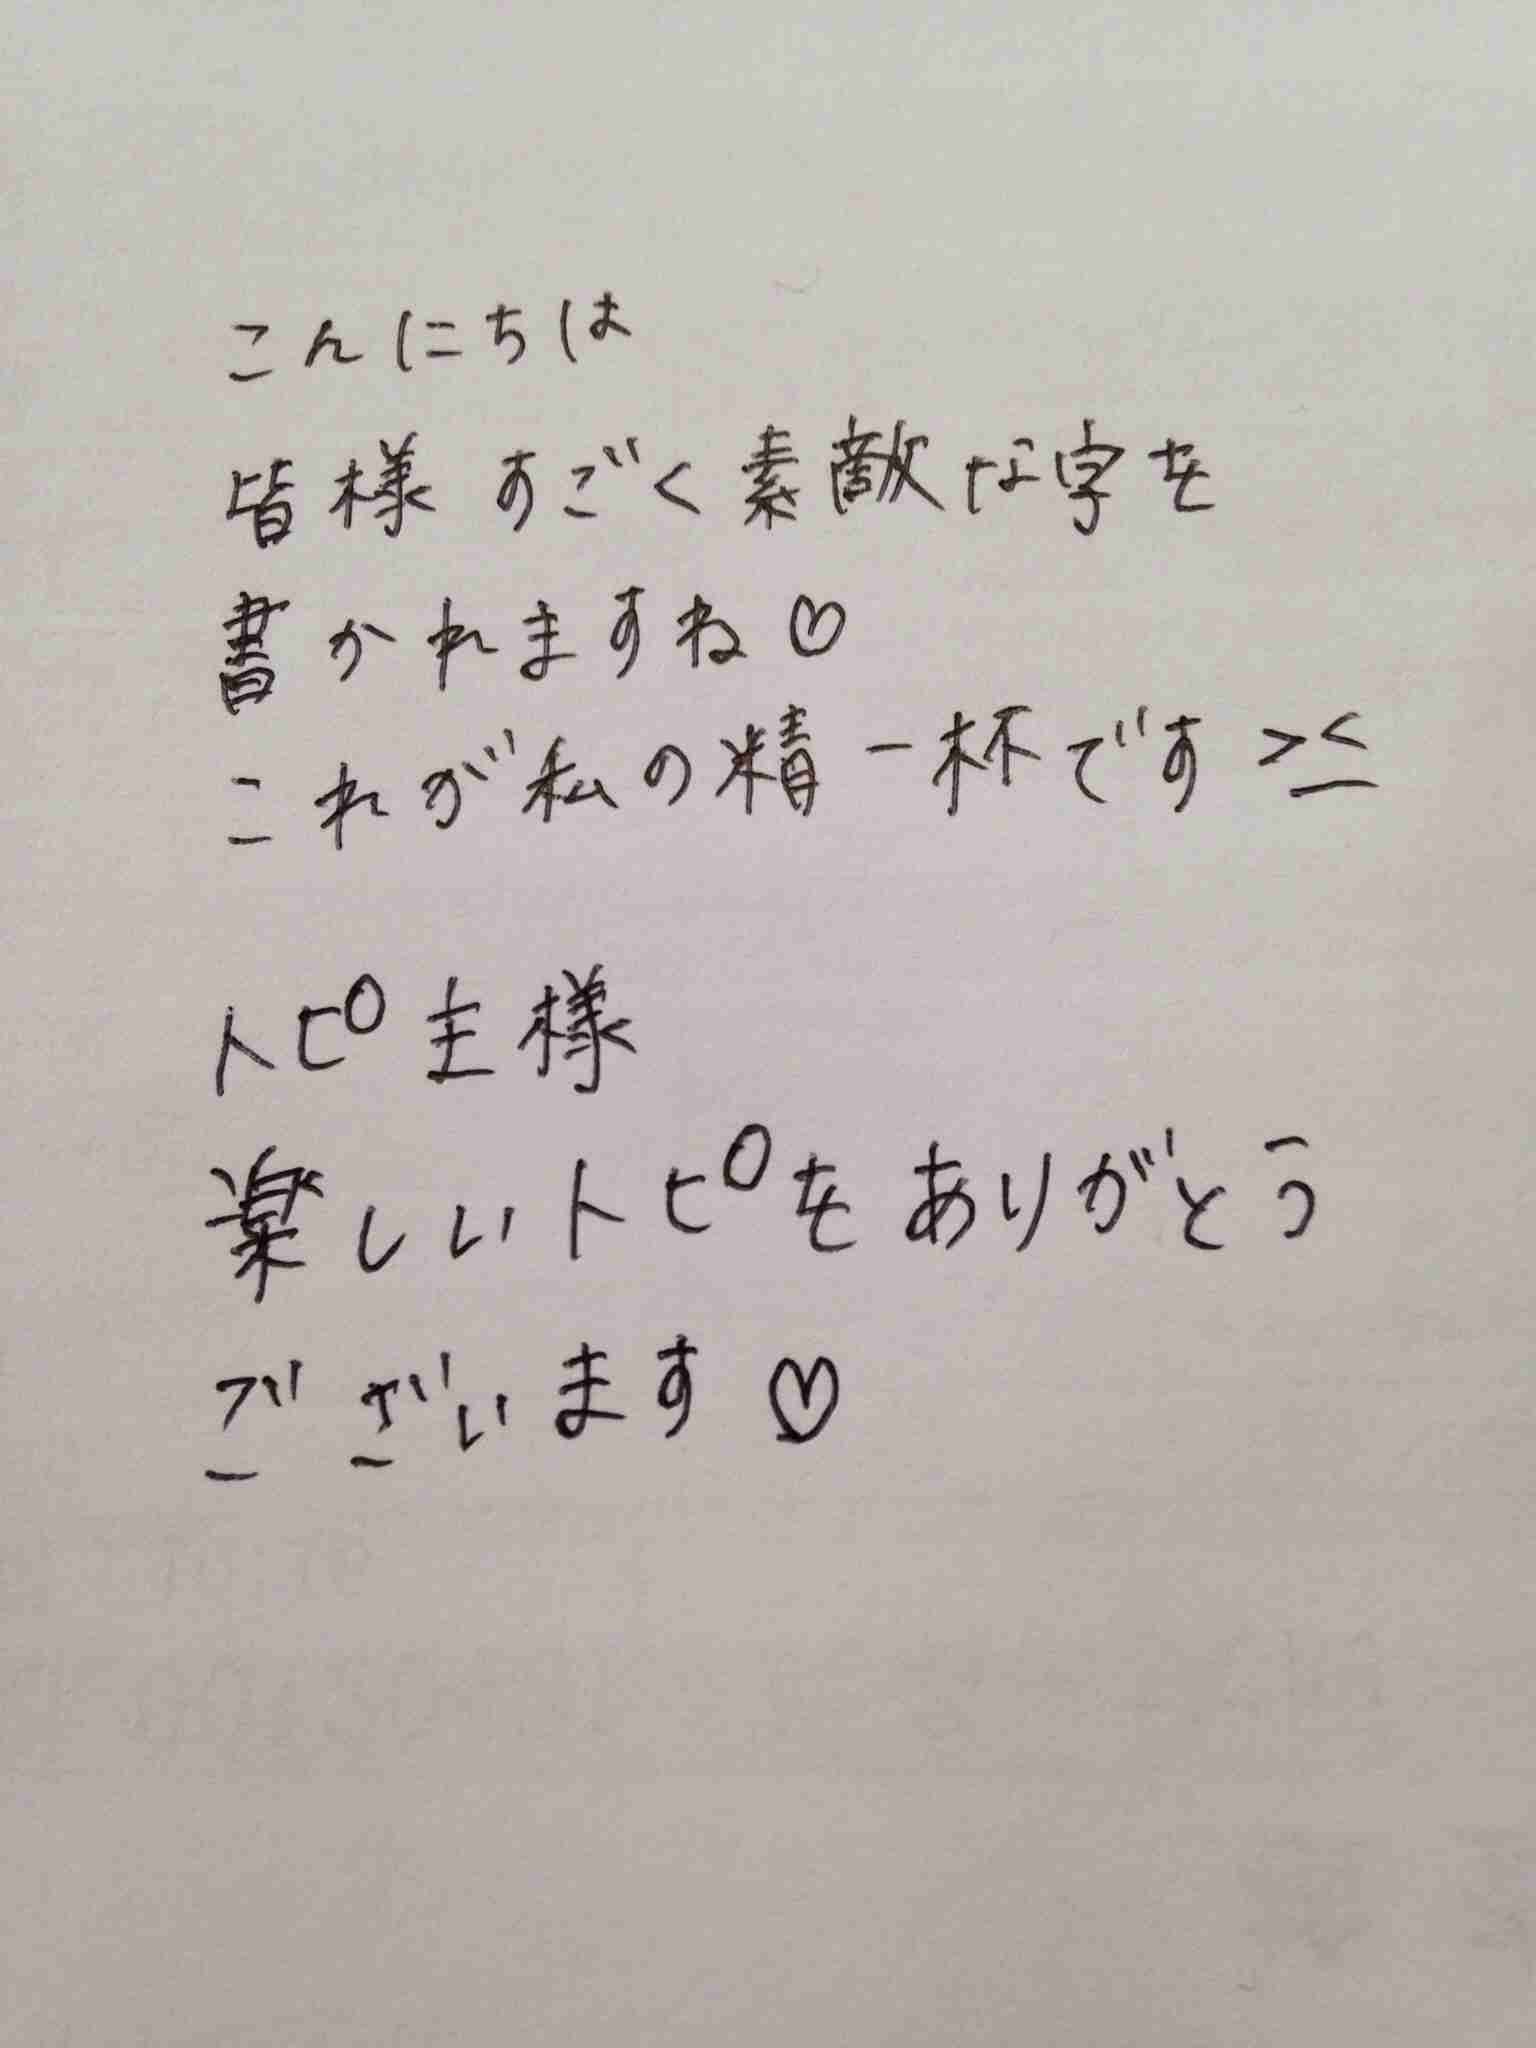 こんにちは
皆様すごく素敵な字を
書かれますね♡
これが私の精一杯です><
トピ主様
楽しいトピをありがとう
ございます♡